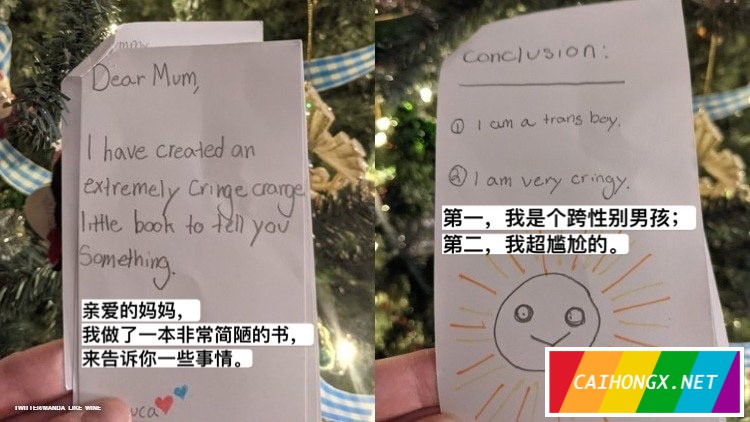 Dear Mum,
I have created an
extremely Cringe crange
little book to tell you
Something.
亲爱的妈妈，
我做了一本非常简陋的书，
来告诉你一些事情。
uca
TWITTER/MANDA LIKE WINE
Conclusion:
① I am a trans boy.
② I am very cringy.
第一，我是个跨性别男孩；
第二，我超尴尬的。
CAIHONGX.NET